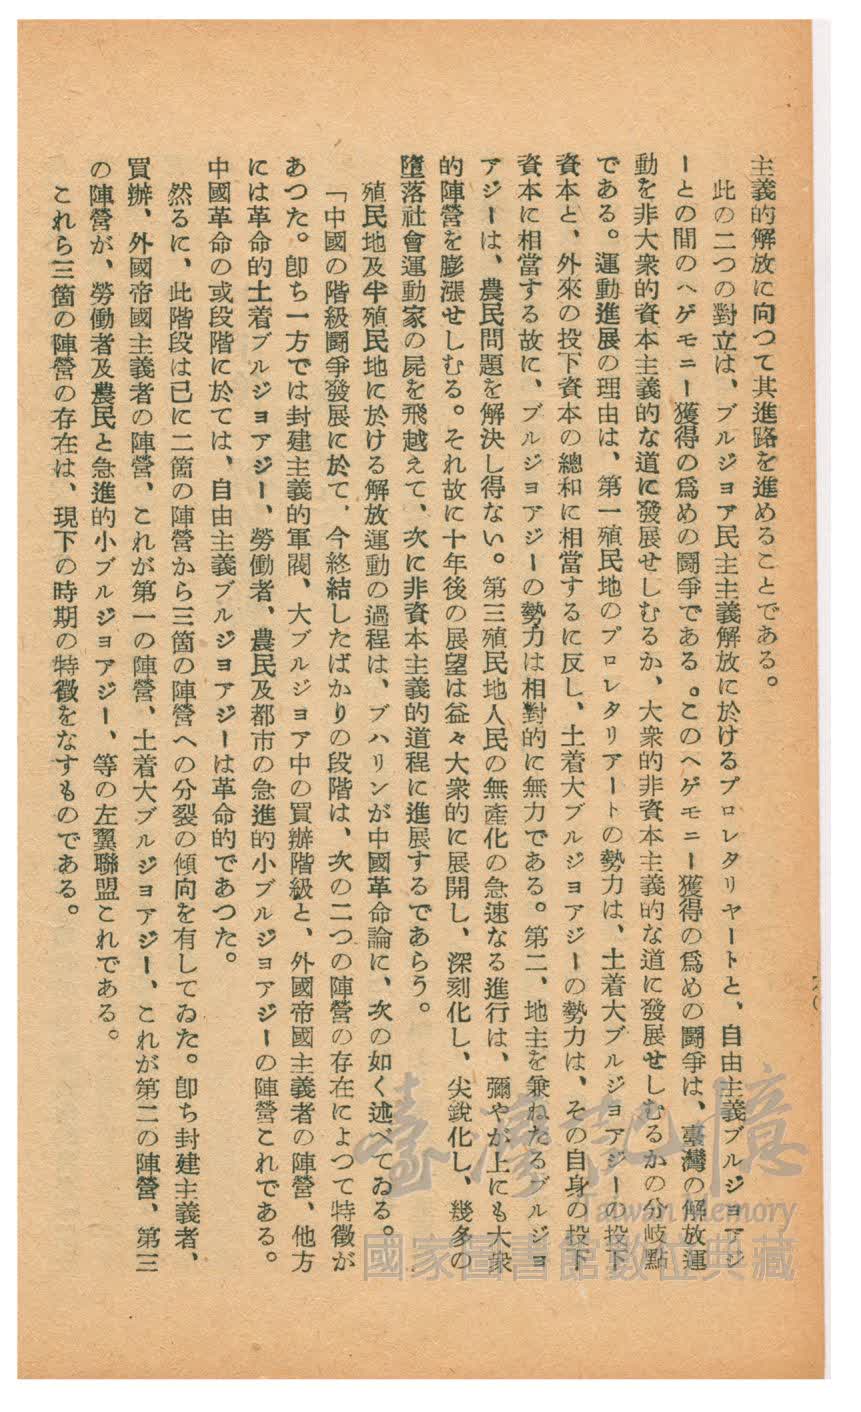 主義的解放に向つて其進路を進めることである。
此の二つの對立は、ブルジョア民主主義解放に於けるプロレタリヤートと、自由主義ブルジョアジ
ーとの間のヘゲモニー獲得の爲めの鬪爭である。このヘゲモニー獲得の爲めの鬪爭は、臺灣の解放運
動を非大衆的資本主義的な道に發展せしむるか、大衆的非資本主義的な道に發展せしむるかの分岐點
である。運動進展の理由は、第一殖民地のプロレタリアートの勢力は、土着大ブルジョアジーの投下
資本と、外來の投下資本の總和に相當するに反し、土着大ブルジョアジーの勢力は、その自身の投下
資本に相當する故に、ブルジョアジーの勢力は相對的に無力である。第二、地主を兼ねたるブルジョ
アジーは、農民問題を解決し得ない。第三殖民地人民の無產化の急速なる進行は、彌やが上にも大衆
的陣營を膨漲せしむる。それ故に十年後の展望は益々大衆的に展開し、深刻化し、尖銳化し、幾多の
墮落社會運動家の屍を飛越えて、次に非資本主義的道程に進展するであらう。
殖民地及半殖民地に於ける解放運動の過程は、ブハリンが中國革命論に、次の如く述べてゐる。
「中國の階級鬪爭發展に於て、今終結したばかりの段階は、次の二つの陣營の存在によつて特徵が
あつた。卽ち一方では封建主義的軍閥、大ブルジョア中の買辦階級と、外國帝國主義者の陣營、他方
には革命的土着ブルジョアジー、勞働者、農民及都市の急進的小ブルジョアジーの陣營これである。
中國革命の或段階に於ては、自由主義ブルジョアジーは革命的であつた。
然るに、此階段は已に二箇の陣營から三箇の陣營への分裂の傾向を有してゐた。卽ち封建主義者、
買辦、外國帝國主義者の陣營、これが第一の陣營、土着大ブルジョアジー、これが第二の陣營、第三
の陣營が、勞働者及農民と急進的小ブルジョアジー、等の左翼聯盟これである。
これら三箇の陣營の存在は、現下の時期の特徵をなすものである。
臺灣記憶
Taiwan Memory
國家圖書館數位典藏